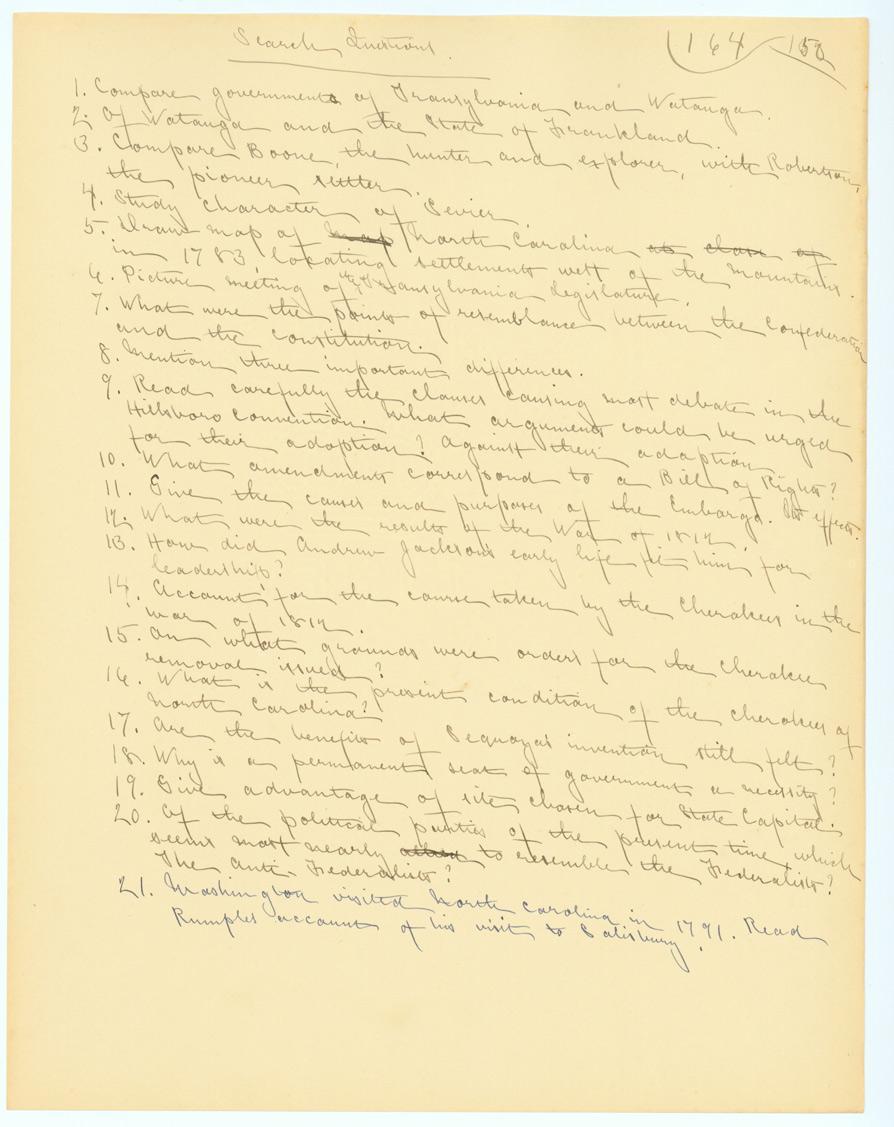 Search Questions.
164 150
1. Compare governments of Transylvania and Watauga.
2. Of Watauga and the State of Frankland.
3. Compare Boone, the hunter and explorer, with Robertson,
the pioneer settler.
4. Study character of Sevier.
5. Draw map of map North Carolina as close of
in 1783, locating settlements west of the mountains.
6. Picture meeting of the Transylvania legislature.
7. What were the points of resemblance between the Confederation
and the constitution.
8. Mention three important differences.
9. Read carefully the clauses causing most debate in the
Hillsboro convention. What arguments could be urged
for their adoption? Against their adoption
10. What amendments correspond to a Bill of Rights?
11. Give the causes and purposes of the Embargo. Its effects.
12. What were the results of the War of 1812.
13. How did Andrew Jackson's early life fit him for
leadership?
14. Account for the course taken by the Cherokees in the
war of 1812.
15. On what grounds were orders for the Cherokee
removal issued?
16. What is the present condition of the Cherokees of
North Carolina?
17. Are the benefits of Sequoya's invention still felt?
18. Why is a permanent seat of government a necessity?
19. Give advantage of site chosen for State Capital.
20. Of the political parties of the present time, which
seems most nearly to resemble the Federalists?
The Anti-Federalists?
21. Washington visited North Carolina in 1791. Read
Rumple's account of his visit to Salisbury.